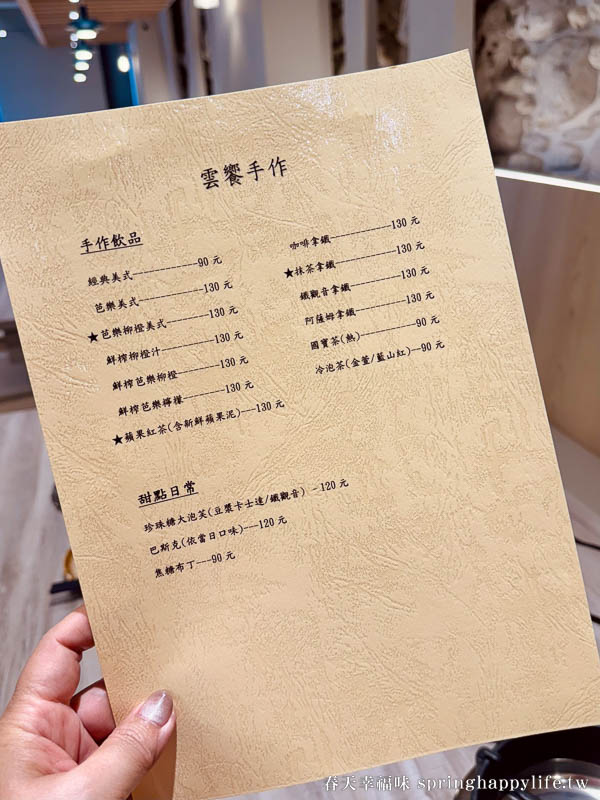 雲饗手作
手作飲品
經典美式------------90 元
芭樂美式------------130 元
★芭樂柳橙美式--------130 元
鮮榨柳橙汁----------130 元
鮮榨芭樂柳橙--------130 元
鮮榨芭樂檸檬--------130 元
★蘋果紅茶(含新鮮蘋果泥)---130 元
咖啡拿鐵------------130 元
★抹茶拿鐵------------130 元
鐵觀音拿鐵----------130 元
阿薩姆拿鐵----------130 元
國寶茶(熱)----------90 元
冷泡茶(金萱/藍山紅)--90 元
甜點日常
珍珠糖大泡芙(豆漿卡士達/鐵觀音) -120 元
巴斯克(依當日口味)---120 元
焦糖布丁---90 元
春天幸福味 springhappylife.tw